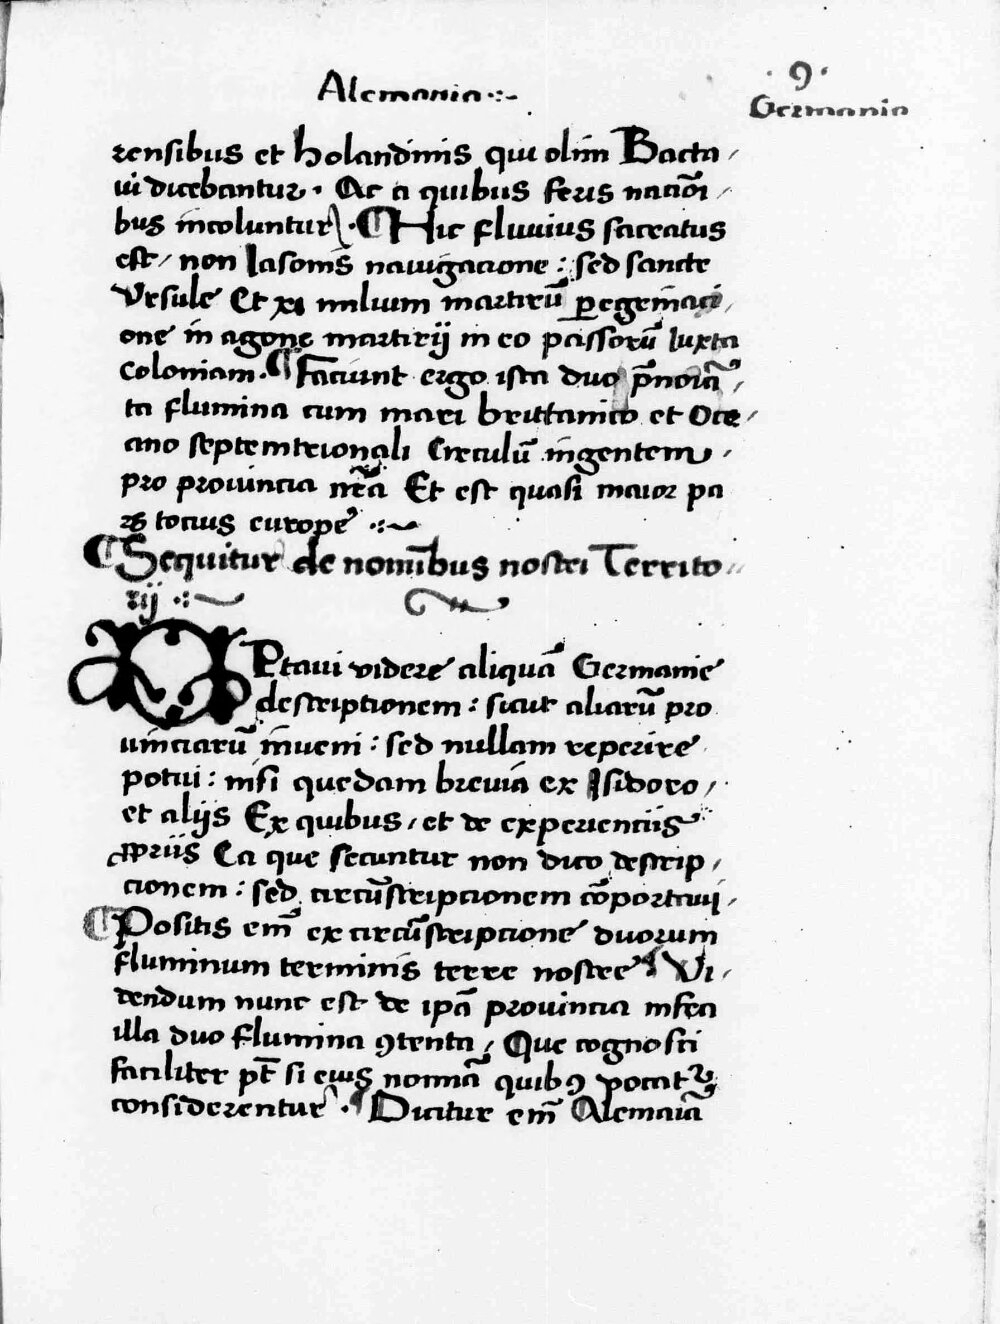 Alemania
9
Germania
rensibus et holandinis qui olim Bacta
ui dicebantur. Ac a quibus feris nacōi
bus incoluntur. Hic fluuius sacratus
est, non Iasonis nauigacione: sed sancte
Vrsule Et xi milium martirū peregrinaci
one in agone martirij in eo passorū Iuxta
coloniam. Faciunt ergo ista duo p̄noīa
ta flumina cum mari brittanico et Oce
ano septemtrionali Circulū ingentem
pro prouincia nr̄a Et est quasi maior pa
rs tocius europe
Sequitur de nomībus nostri Territo
rij
OPtaui videre aliquā Germanie
descriptionem: sicut aliarū pro
uinciarū inueni: sed nullam reperire
potui: nisi quedam breuia ex Isidoro,
et alijs Ex quibus, et de experiencijs
ꝓprijs Ea que secuntur non dico descrip
cionem: sed circūscripcionem cōportaui
Positis em̄ ex circūscripcione duorum
fluminum terminis terre nostre Vi
dendum nunc est de ipā prouincia infra
illa duo flumina ꝯtenta, Que cognosci
faciliter pt̄ si eius nomīa quibꝯ vocatur
considerentur. Dicitur em̄ Alemaīa